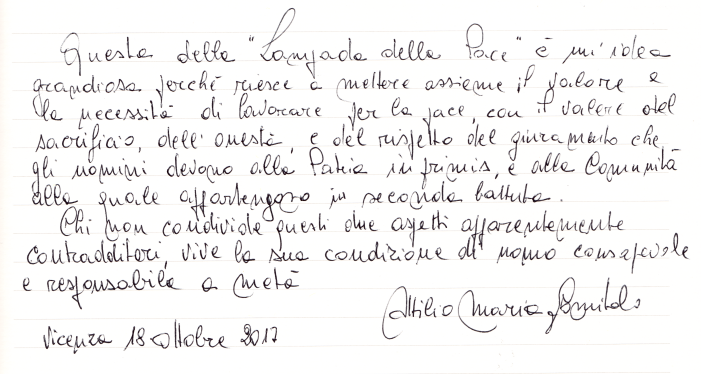 Questa della "Lampada della Pace" è un'idea
grandiosa perché riesce a mettere assieme il valore e
la necessità di lavorare per la pace, con il valore del
sacrificio, dell'onestà, e del rispetto del giuramento che
gli uomini devono alla Patria in primis, e alla Comunità
alla quale appartengono in seconda battuta.
Chi non condivide questi due aspetti apparentemente
contradditori, vive la sua condizione di uomo consapevole
e responsabile a metà
Attilio Maria
Vicenza 18 ottobre 2017